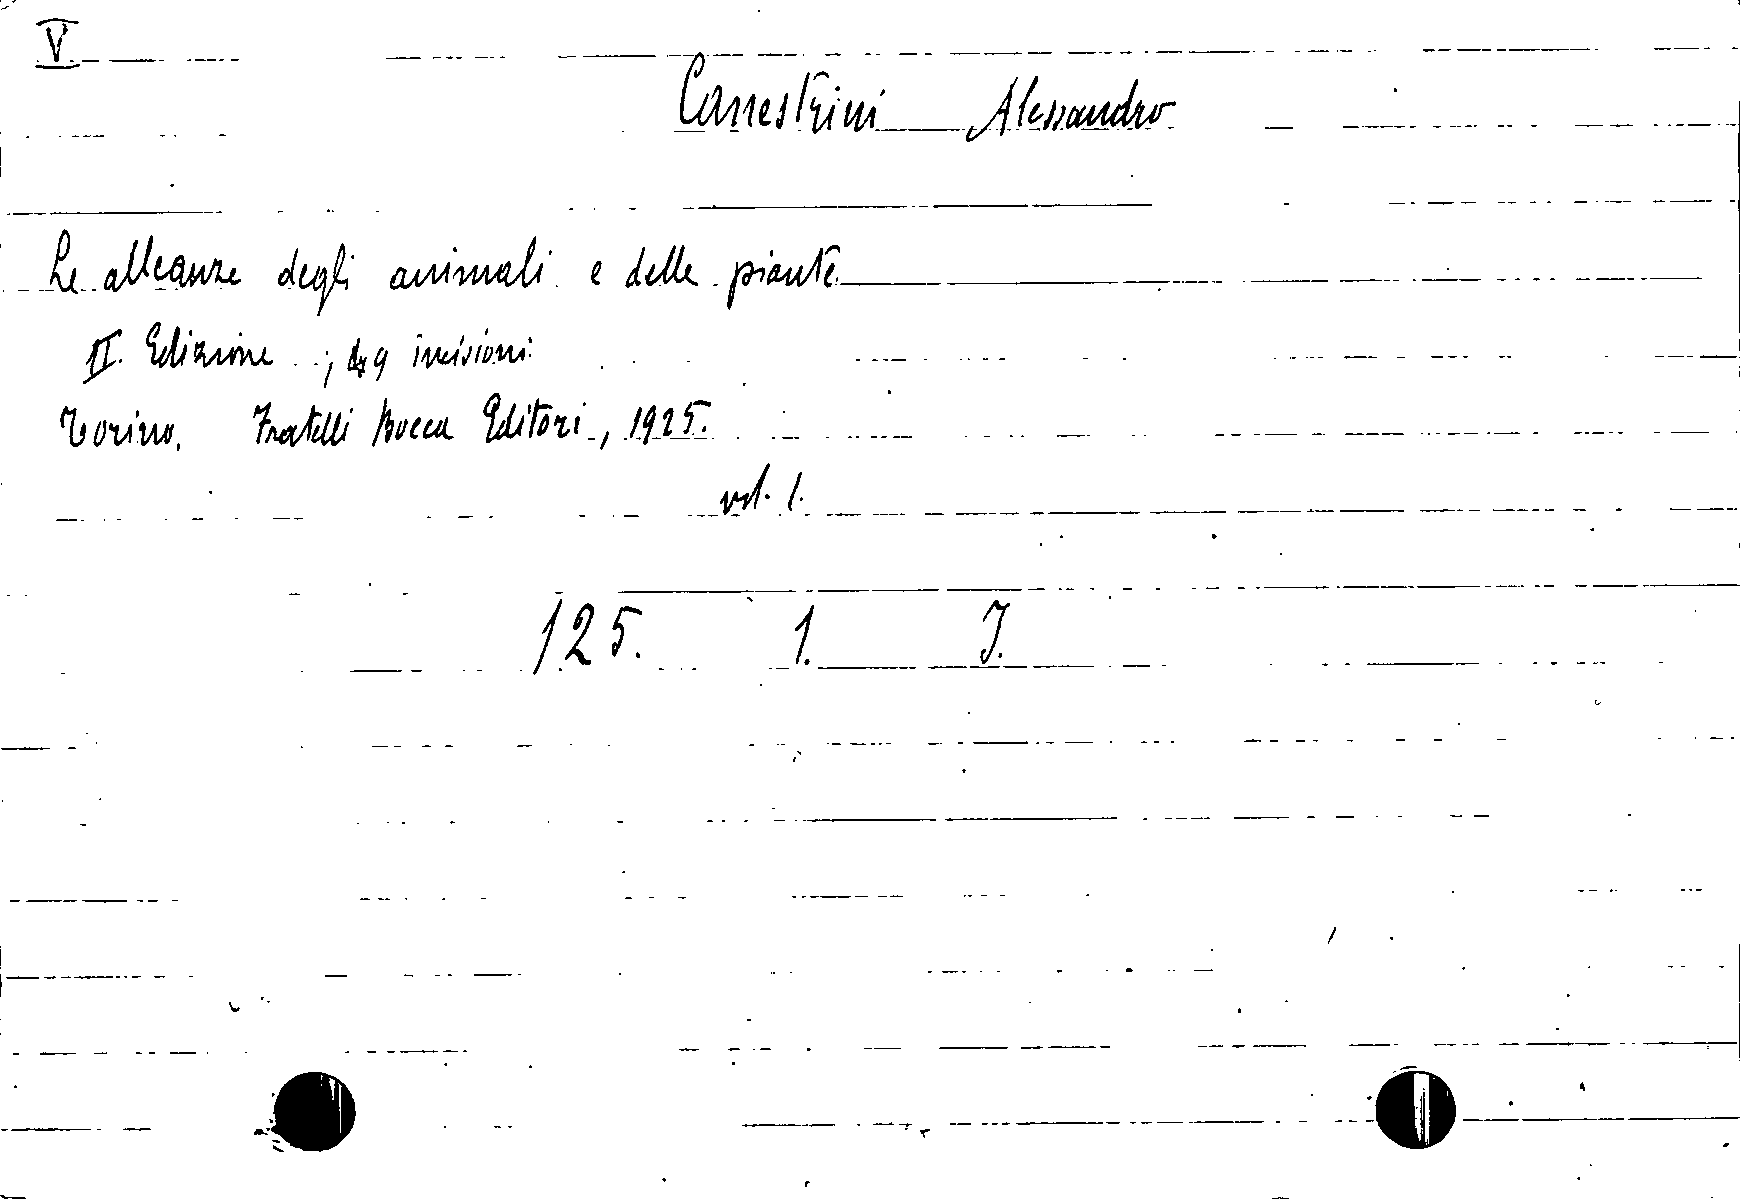 V
Canestrini Alessandro
Le alleanze degli animali e delle piante
II. Edizione ; 9 incisioni
Torino. Fratelli Bocca Editori, 1925.
vol. 1.
125. 1. J.